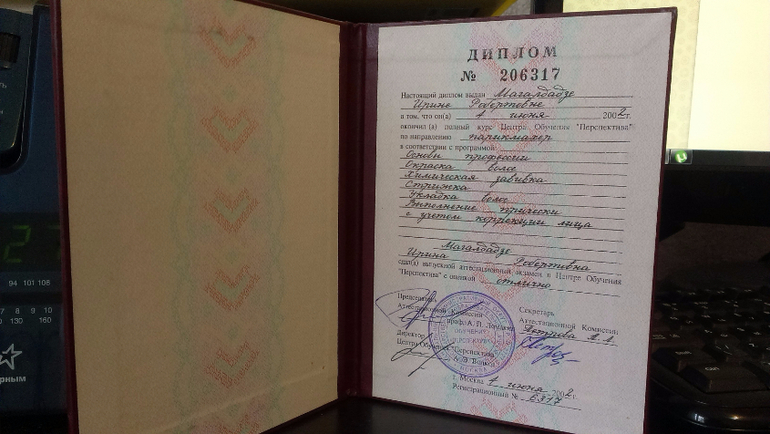 ДИПЛОМ
№ 206317
Настоящий диплом выдан Магалдадзе
Ирине Робертовне
в том, что он(а) 1 июня 2002 г.
окончил(а) полный курс Центра Обучения "Перспектива"
по направлению парикмахер
в соответствии с программой:
Основы профессии
Окраска волос
Химическая завивка
Стрижка
Укладка волос
Выполнение прически
с учетом коррекции лица
Магалдадзе
Ирина Робертовна
сдал(а) выпускной аттестационный экзамен в Центре Обучения
"Перспектива" с оценкой отлично
Председатель
Аттестационной Комиссии
проф. А. П.
Директор
Центра Обучения "Перспектива"
Секретарь
Аттестационной Комиссии
Петрова А. А.
г. Москва 1 июня 2002 г.
Регистрационный № 6317
94 101 108
7 8 9 10
130 160